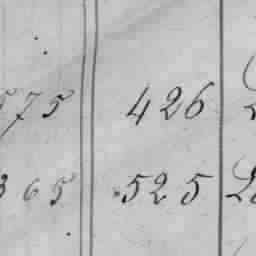 575 426
365 525